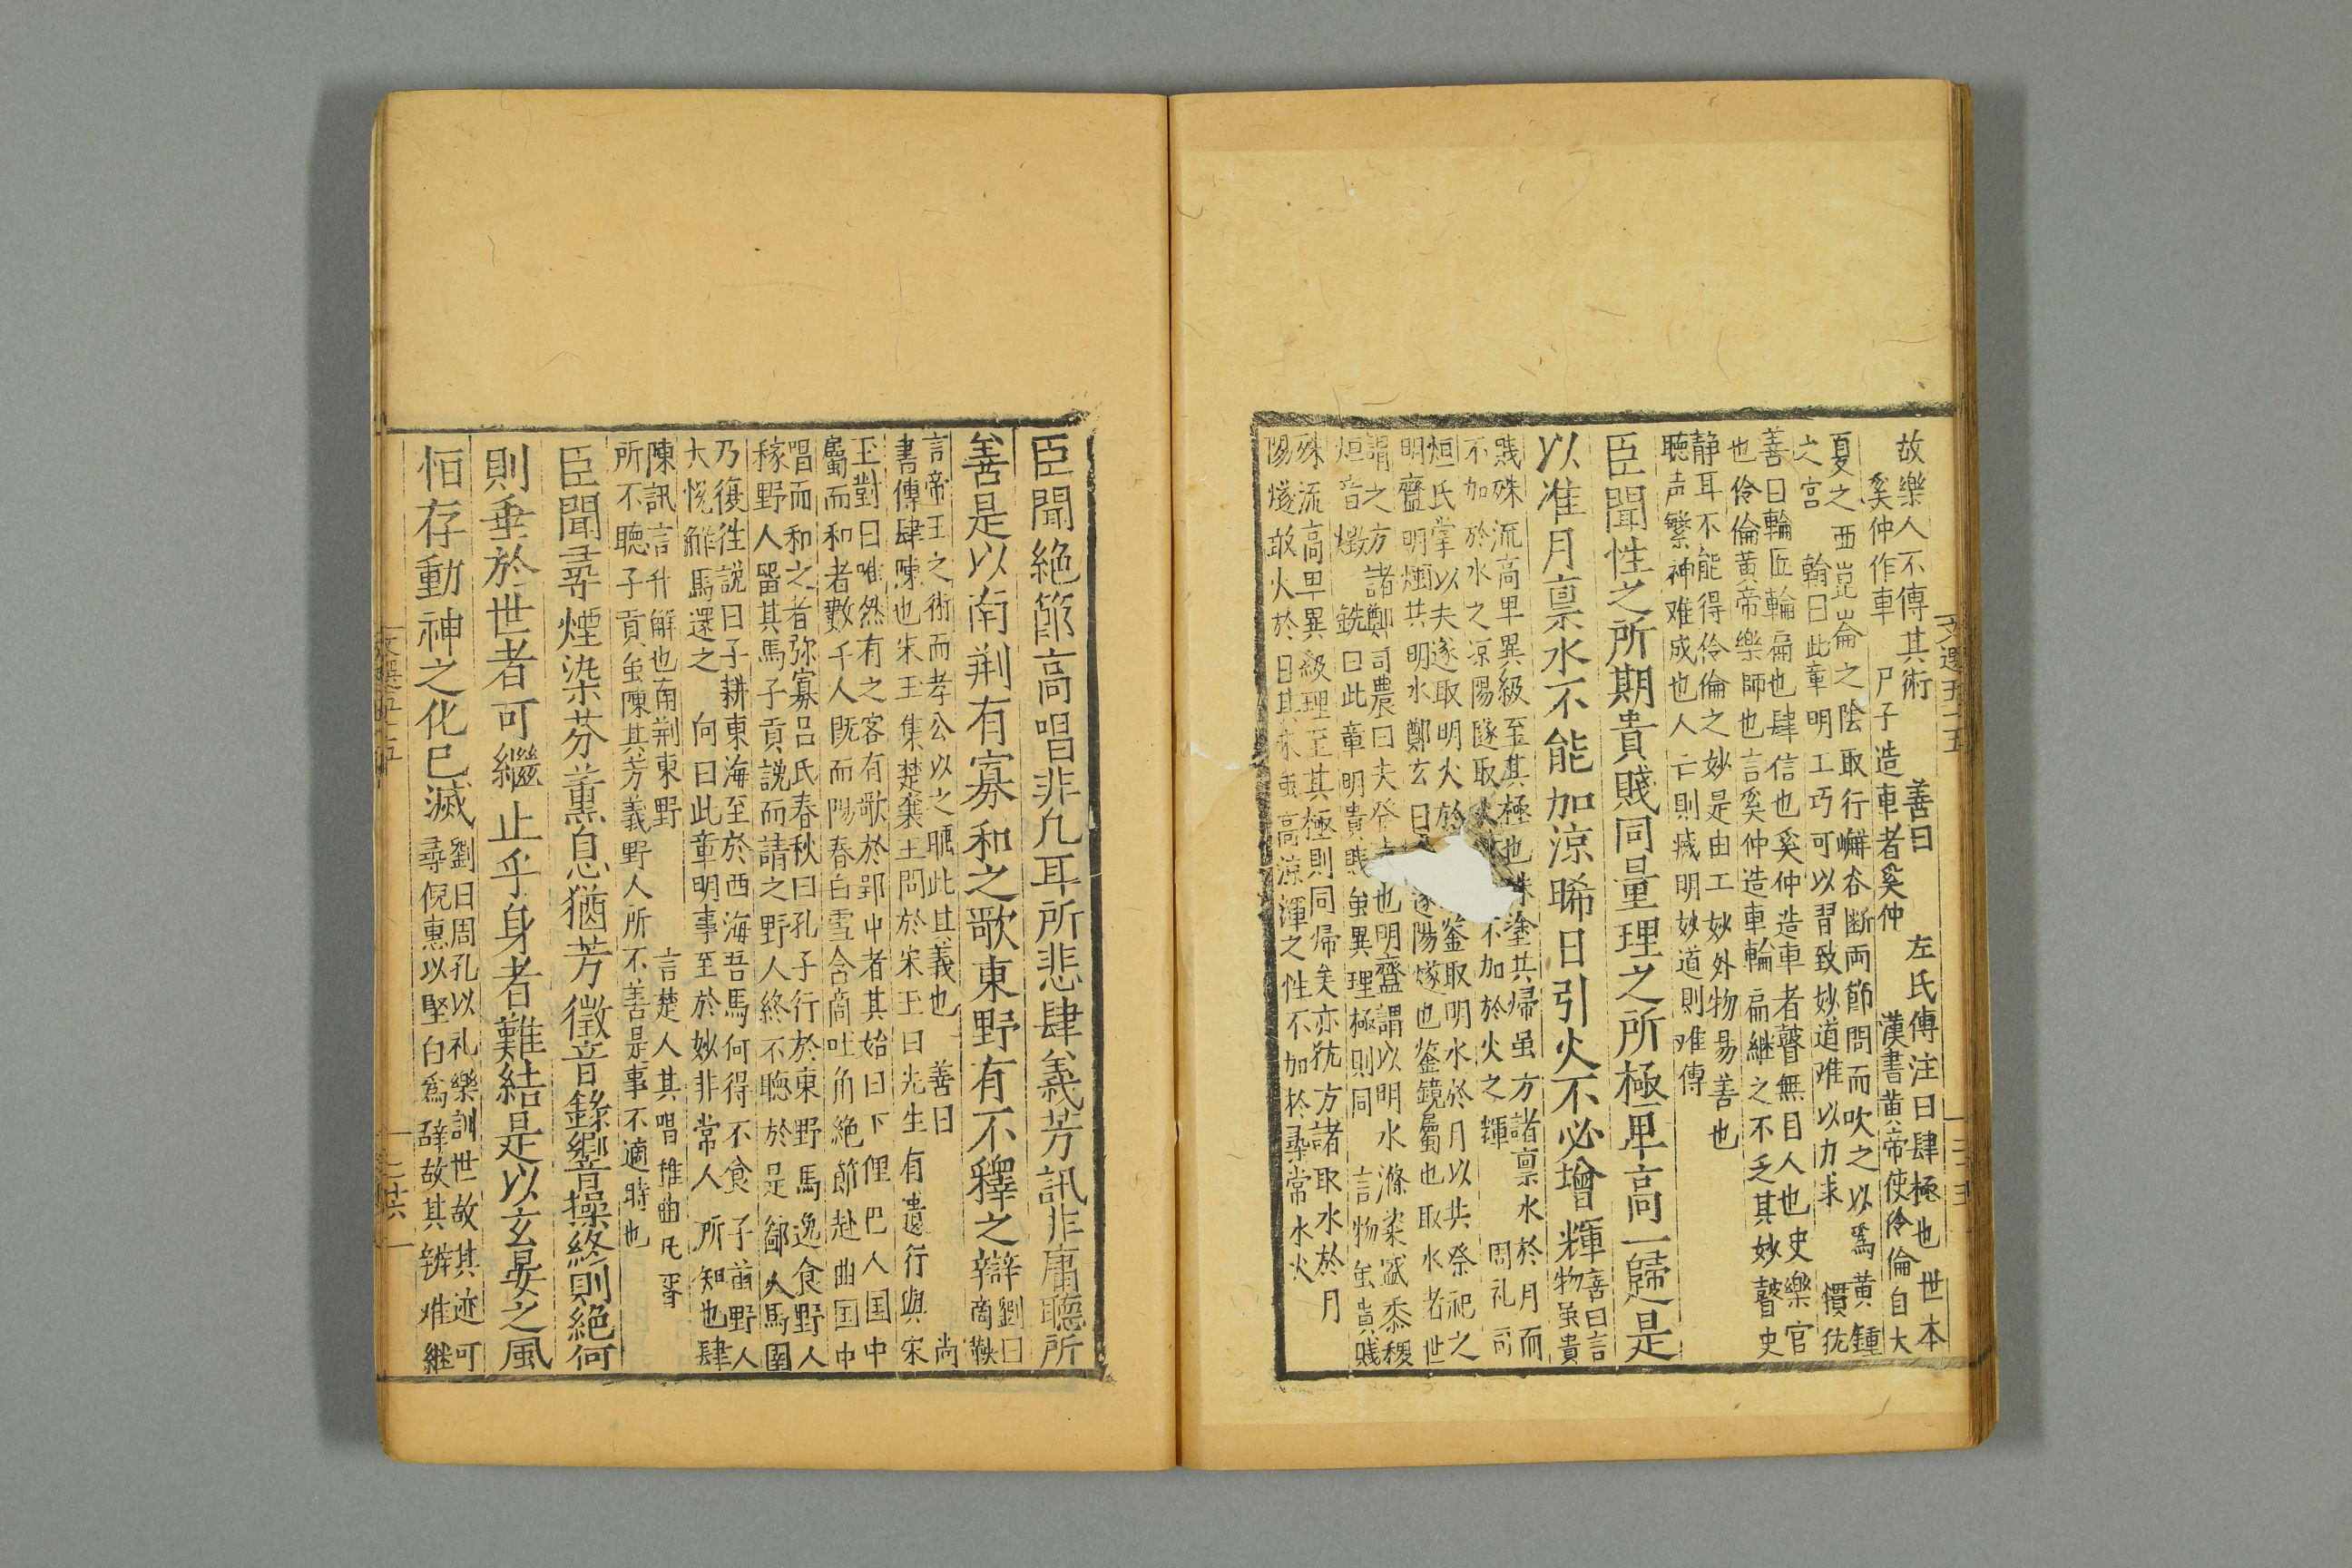 故樂人不傳其術　善曰　左氏傳注曰肆極也　世本
奚仲作車　尸子造車者奚仲　漢書黃帝使伶倫自大
夏之西崑崙之陰取行嶰谷斷兩節間而吹之以爲黃鍾
之宮　翰曰此章明工巧可以習致妙道难以力求　慣犹
善曰輪匠輪扁也肆信也奚仲造車者瞽無目人也史樂官
也伶倫黃帝樂師也言奚仲造車輪扁継之不乏其妙瞽史
静耳不能得伶倫之妙是由工妙外物易善也
聽声繁神难成也人亡則藏明妙道則难傳
臣聞性之所期貴賤同量理之所極卑高一歸是
以准月禀水不能加涼晞日引火不必增輝
善曰言
物虽貴
賤殊流高早異級至其極也殊塗共歸虽方諸禀水於月而
不加於水之凉陽隧取火　不加於火之輝　周礼司
烜氏掌以夫遂取明火於　鉴取明水於月以共祭祀之
明齍明燭共明水鄭玄曰　遂陽燧也鉴鏡屬也取水者世
謂之方諸鄭司農曰夫發　也明齍謂以明水滌粢盛黍稷
烜音燬　銑曰此章明貴賤虽異理極則同　言物虽貴賤
殊流高早異級理至其極則同帰矣亦犹方諸取水於月
陽燧敢火於日其　虽高涼渾之性不加於尋常水火
文選五十五
二十五
臣聞絶節高唱非凡耳所悲肆義芳訊非庸聽所
善是以南荆有寡和之歌東野有不釋之辯
劉曰
商鞅
言帝王之術而孝公以之睡此其義也　善曰　尚
書傳肆陳也宋玉集楚襄王問於宋玉曰先生有遺行與宋
玉對曰唯然有之客有歌於郢中者其始曰下俚巴人国中
屬而和者數千人既而陽春白雪含商吐角絶節赴曲国中
唱而和之者弥寡吕氏春秋曰孔子行於東野馬逸食野人
稼野人留其馬子貢說而請之野人終不聽於是鄙人馬圉
乃復往說曰子耕東海至於西海吾馬何得不食子苗野人
大恱觧馬還之　向曰此章明事至於妙非常人所知也肆
陳訊言升解也南荆東野　言楚人其唱雅曲凡胥
所不聽子貢虽陳其芳義野人所不善是事不適時也
臣聞尋煙染芬薰息猶芳徵音錄響操終則絶何
則垂於世者可繼止乎身者難結是以玄晏之風
恒存動神之化已滅
劉曰周孔以礼樂訓世故其迹可
尋倪惠以堅白爲辞故其辨难継
文選五十五
二十六